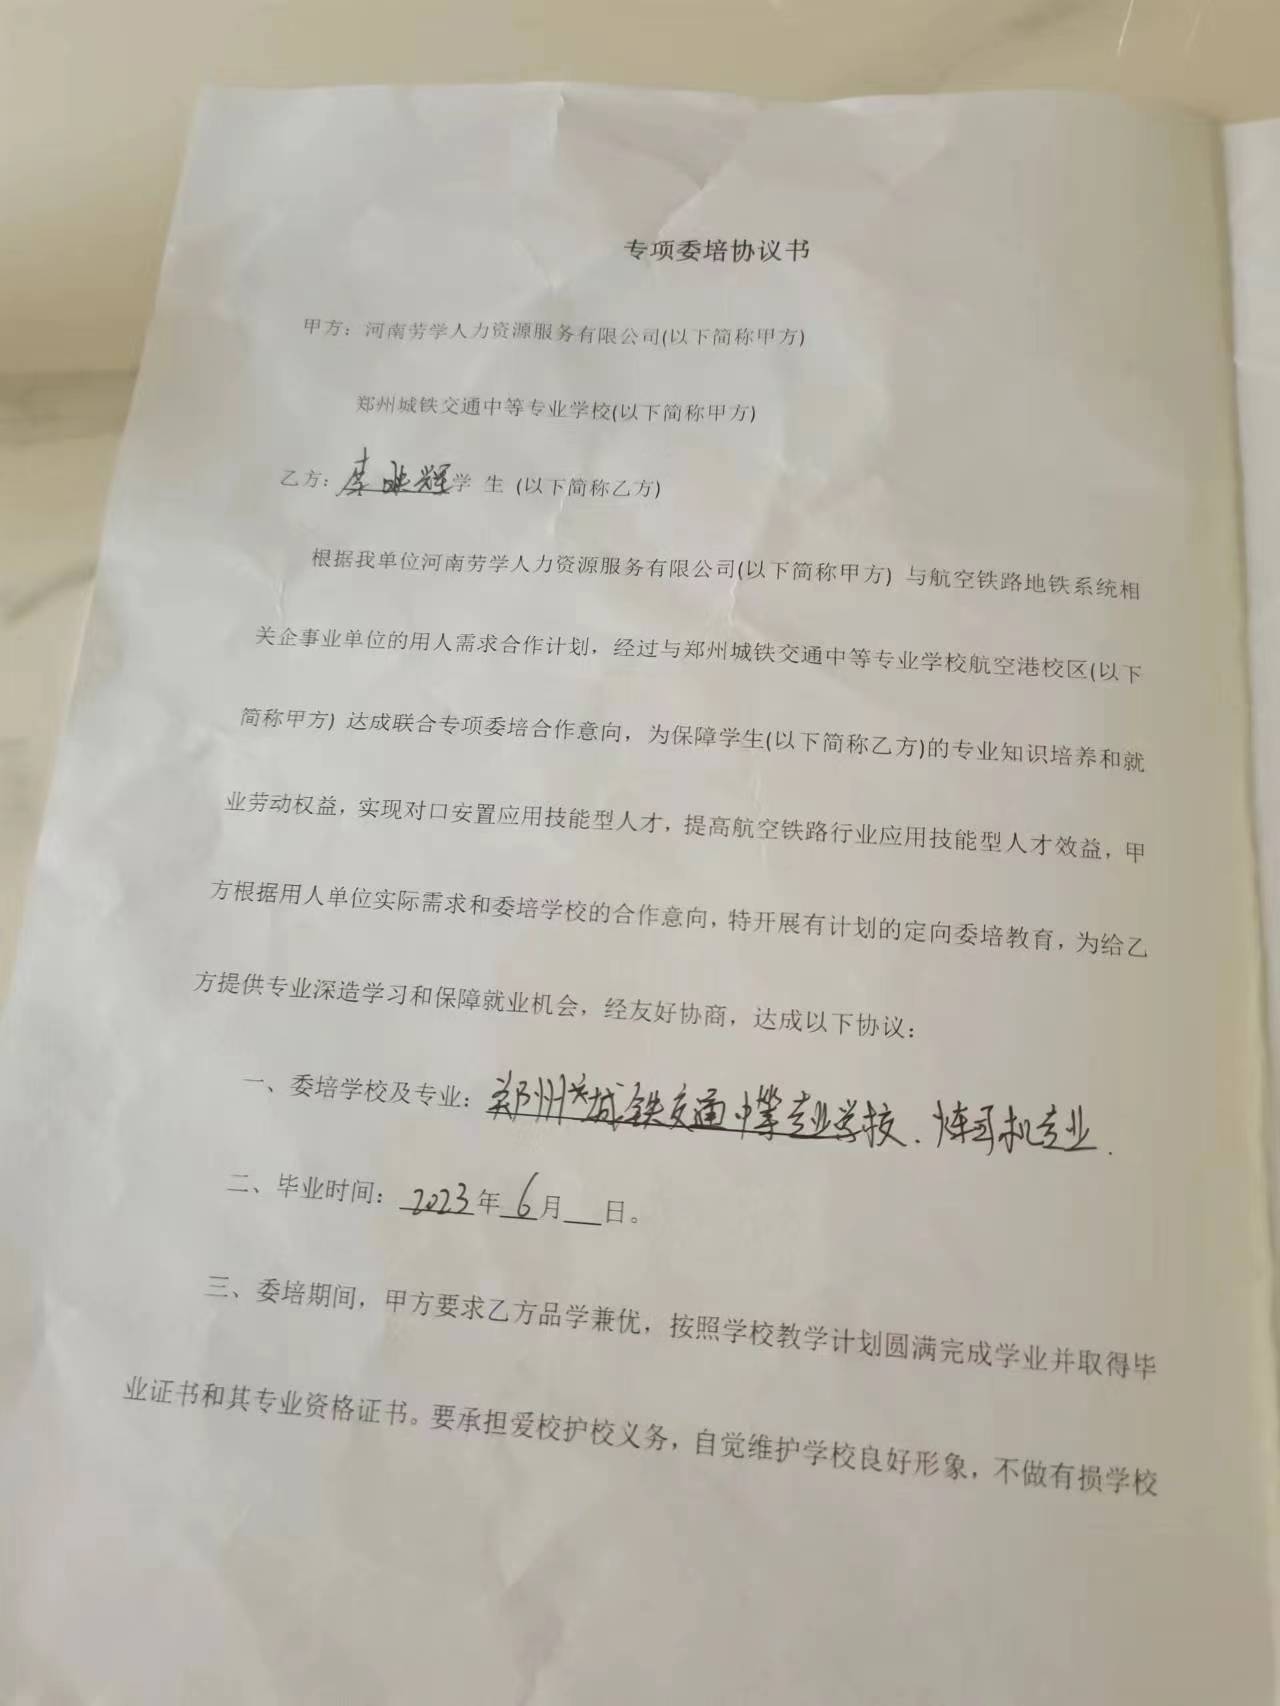 专项委培协议书
甲方：河南劳学人力资源服务有限公司(以下简称甲方)
郑州城铁交通中等专业学校(以下简称甲方)
乙方：李 辉学 生 (以下简称乙方)
根据我单位河南劳学人力资源服务有限公司(以下简称甲方) 与航空铁路地铁系统相
关企事业单位的用人需求合作计划，经过与郑州城铁交通中等专业学校航空港校区(以下
简称甲方) 达成联合专项委培合作意向，为保障学生(以下简称乙方)的专业知识培养和就
业劳动权益，实现对口安置应用技能型人才，提高航空铁路行业应用技能型人才效益，甲
方根据用人单位实际需求和委培学校的合作意向，特开展有计划的定向委培教育，为给乙
方提供专业深造学习和保障就业机会，经友好协商，达成以下协议：
一、委培学校及专业：郑州城铁交通中等专业学校. 机专业.
二、毕业时间：2023年6月__日。
三、委培期间，甲方要求乙方品学兼优，按照学校教学计划圆满完成学业并取得毕
业证书和其专业资格证书。要承担爱校护校义务，自觉维护学校良好形象，不做有损学校